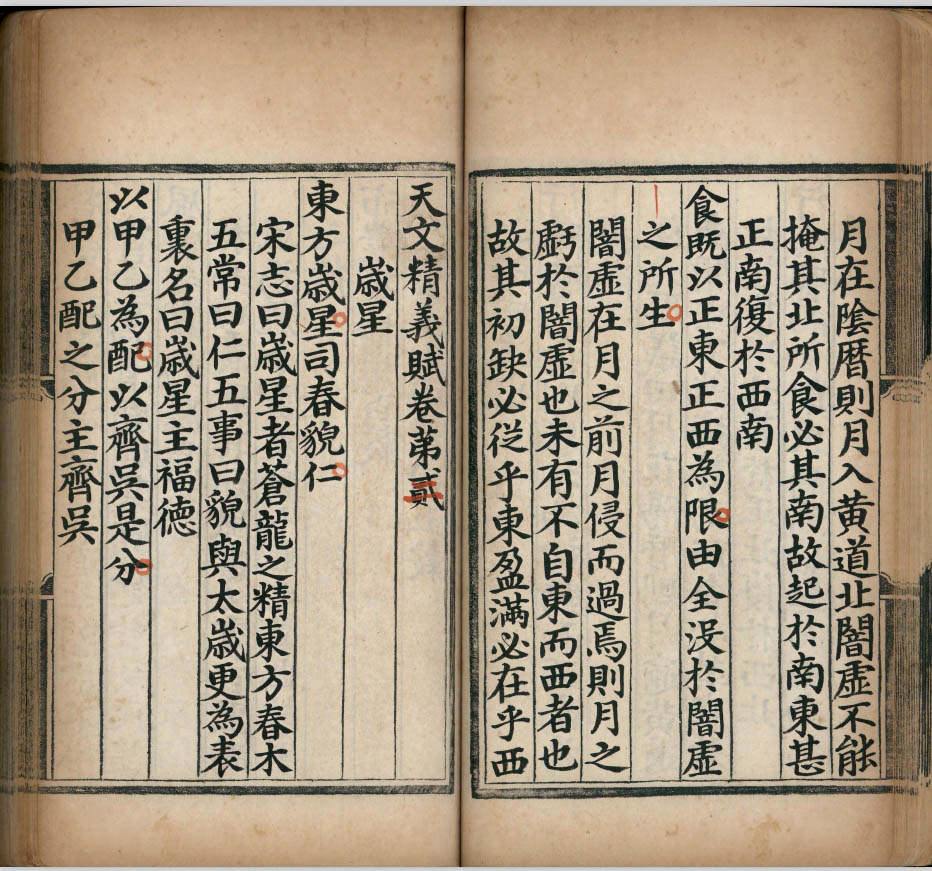 月在陰曆則月入黄道北闇虛不能
掩其北所食必其南故起於南東甚
正南復於西南
食既以正東正西為限由全没於闇虛
之所生
闇虛在月之前月侵而過焉則月之
虧於闇虛也未有不自東而西者也
故其初缺必從乎東盈滿必在乎西
天文精義賦卷第貳
歲星
東方歲星司春貌仁
宋志曰歲星者蒼龍之精東方春木
五常曰仁五事曰貌與太歲更為表
裏名曰歲星主福徳
以甲乙為配以齊吳是分
甲乙配之分主齊吳